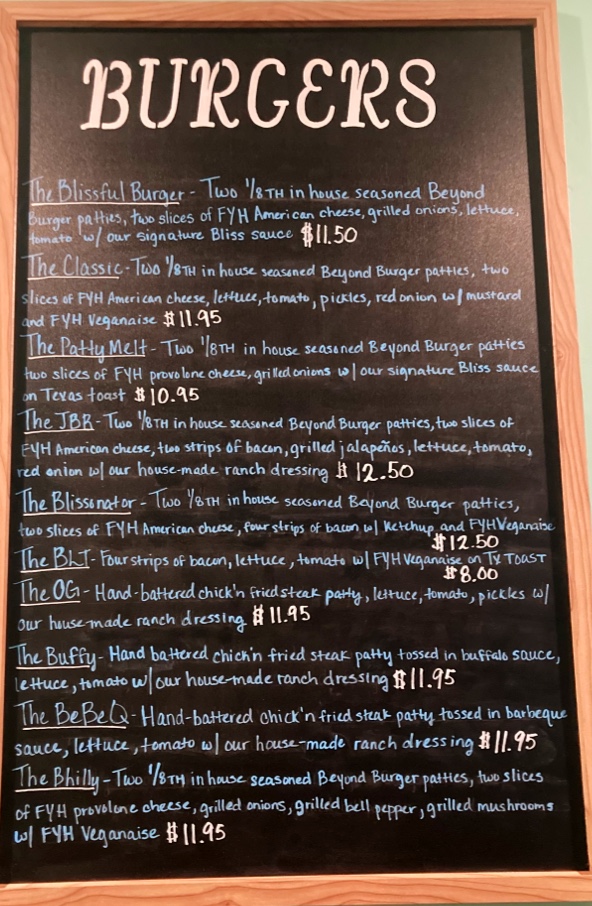 BURGERS
The Blissful Burger - Two 1/8TH in house seasoned Beyond
Burger patties, two slices of FYH American cheese, grilled onions, lettuce,
tomato w/ our signature Bliss sauce $11.50
The Classic - Two 1/8TH in house seasoned Beyond Burger patties, two
slices of FYH American cheese, lettuce, tomato, pickles, red onion w/ mustard
and FYH Veganaise $11.95
The Patty Melt - Two 1/8TH in house seasoned Beyond Burger patties
two slices of FYH provolone cheese, grilled onions w/ our signature Bliss sauce
on Texas toast $10.95
The JBR - Two 1/8TH in house seasoned Beyond Burger patties, two slices of
FYH American cheese, two strips of bacon, grilled jalapeños, lettuce, tomato,
red onion w/ our house-made ranch dressing $12.50
The Blissonator - Two 1/8TH in house seasoned Beyond Burger patties,
two slices of FYH American cheese, four strips of bacon w/ Ketchup and FYH Veganaise
$12.50
The BLT - Four strips of bacon, lettuce, tomato w/ FYH Veganaise on TX TOAST
$8.00
The OG - Hand-battered chick'n fried steak patty, lettuce, tomato, pickles w/
our house-made ranch dressing $11.95
The Buffy - Hand battered chick'n fried steak patty tossed in buffalo sauce,
lettuce, tomato w/ our house-made ranch dressing $11.95
The BeBeQ - Hand-battered chick'n fried steak patty tossed in barbeque
sauce, lettuce, tomato w/ our house-made ranch dressing $11.95
The Bhilly - Two 1/8TH in house seasoned Beyond Burger patties, two slices
of FYH provolone cheese, grilled onions, grilled bell pepper, grilled mushrooms
w/ FYH Veganaise $11.95